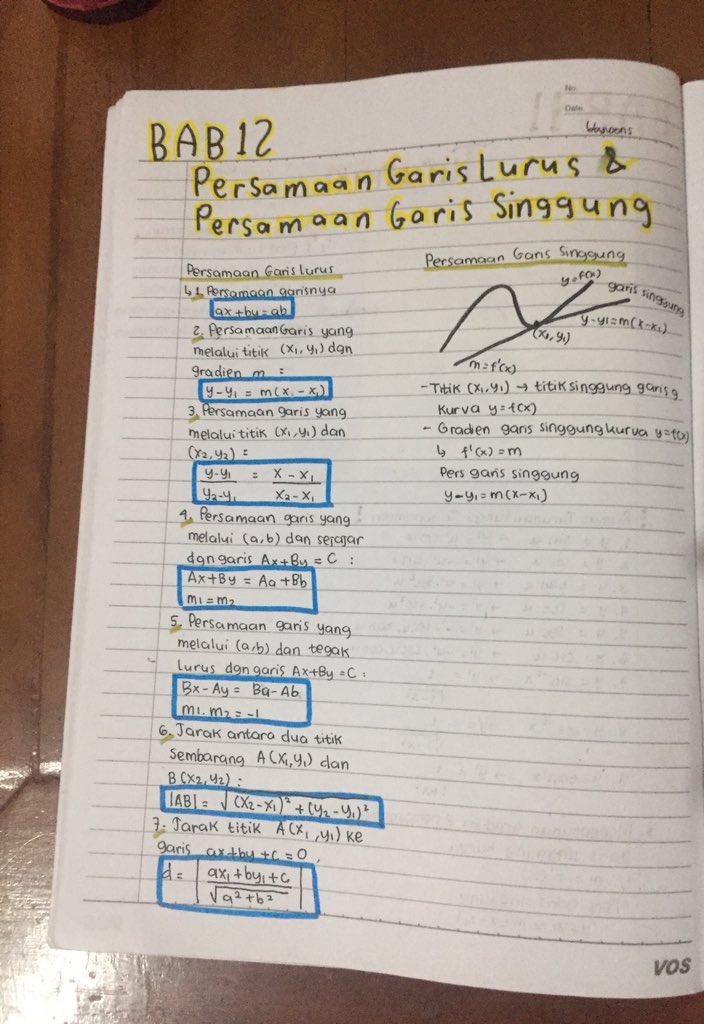 No.
Date
BAB 12
Persamaan Garis Lurus &
Persamaan Garis Singgung
Persamaan Garis Lurus
↳ 1. Persamaan garisnya
ax+by=ab
2. Persamaan Garis yang
melalui titik (x₁, y₁) dgn
gradien m :
y-y₁ = m(x - x₁)
3. Persamaan garis yang
melalui titik (x₁, y₁) dan
(x₂, y₂) :
y-y₁ / y₂-y₁ = x-x₁ / x₂-x₁
4. Persamaan garis yang
melalui (a,b) dan sejajar
dgn garis Ax+By=C :
Ax+By = Aa+Bb
m₁=m₂
5. Persamaan garis yang
melalui (a,b) dan tegak
lurus dgn garis Ax+By=C :
Bx-Ay = Ba-Ab
m₁.m₂=-1
6. Jarak antara dua titik
sembarang A(x₁,y₁) dan
B(x₂,y₂) :
|AB| = √(x₂-x₁)²+(y₂-y₁)²
7. Jarak titik A(x₁,y₁) ke
garis ax+by+c=0,
d = | ax₁+by₁+c / √a²+b² |
Persamaan Garis Singgung
y=f(x)
garis singgung
y-y₁=m(x-x₁)
(x₁,y₁)
m=f'(x)
- Titik (x₁,y₁) → titik singgung garis g
kurva y=f(x)
- Gradien garis singgung kurva y=f(x)
↳ f'(x)=m
Pers garis singgung
y-y₁=m(x-x₁)
VOS